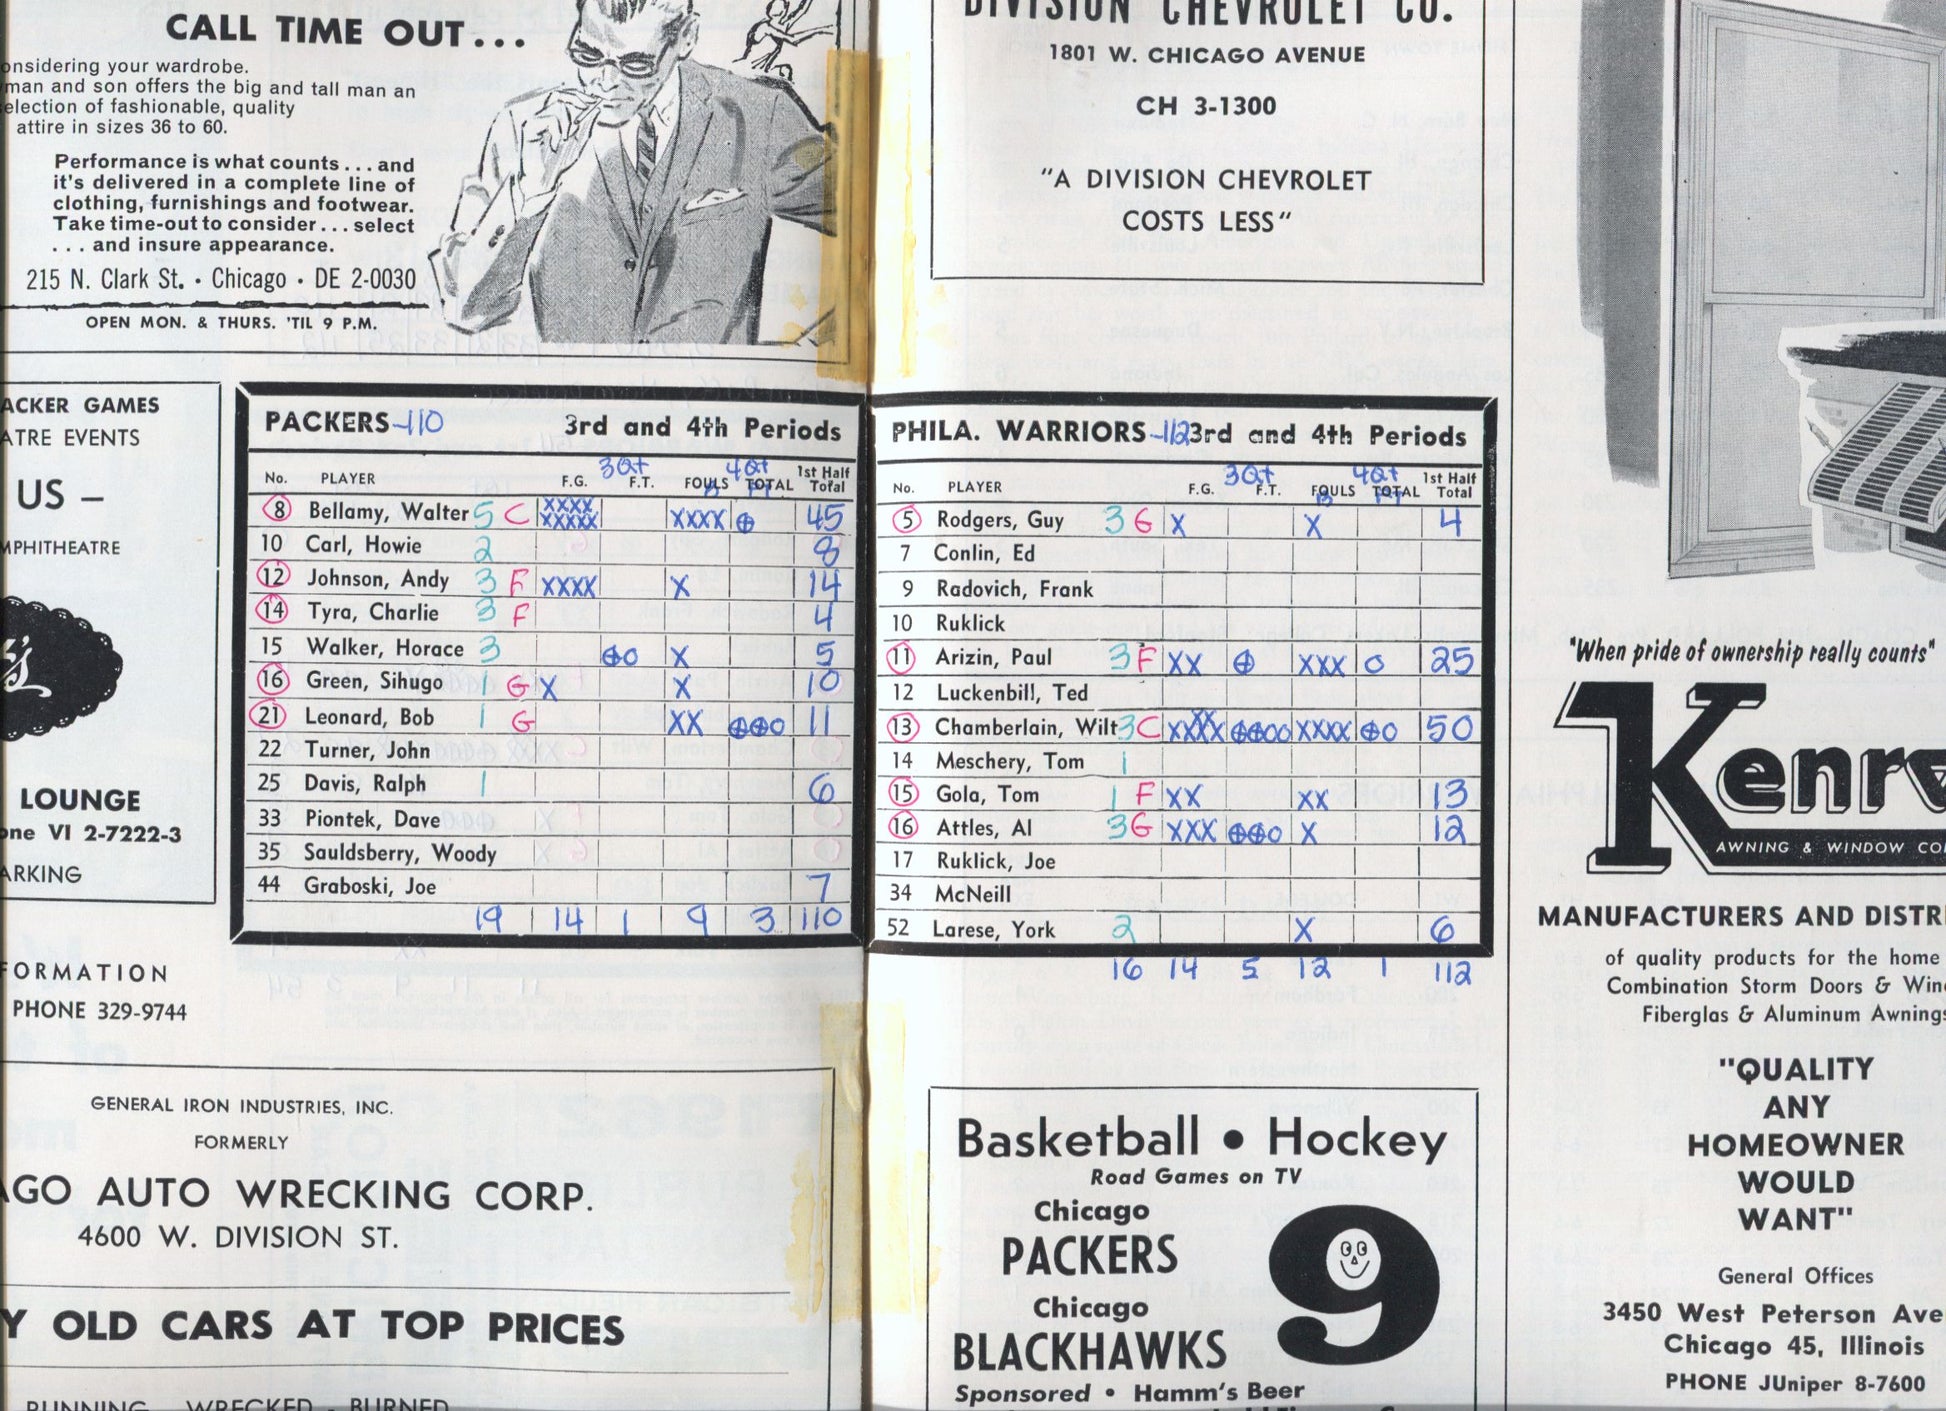 CALL TIME OUT...
onsidering your wardrobe.
man and son offers the big and tall man an
election of fashionable, quality
attire in sizes 36 to 60.
Performance is what counts...and
it's delivered in a complete line of
clothing, furnishings and footwear.
Take time-out to consider...select
...and insure appearance.
215 N. Clark St. · Chicago · DE 2-0030
OPEN MON. & THURS. 'TIL 9 P.M.
DIVISION CHEVROLET CO.
1801 W. CHICAGO AVENUE
CH 3-1300
"A DIVISION CHEVROLET
COSTS LESS"
ACKER GAMES
ATRE EVENTS
US –
MPHITHEATRE
's
LOUNGE
one VI 2-7222-3
ARKING
FORMATION
PHONE 329-9744
PACKERS-110 3rd and 4th Periods
3Qt 4Qt
No. PLAYER F.G. F.T. FOULS TOTAL 1st Half Total
8 Bellamy, Walter 5 C XXXX XXXXX XXXX ⊕ 45
10 Carl, Howie 2 8
12 Johnson, Andy 3 F XXXX X 14
14 Tyra, Charlie 3 F 4
15 Walker, Horace 3 ⊕O X 5
16 Green, Sihugo 1 G X X 10
21 Leonard, Bob 1 G XX ⊕⊕O 11
22 Turner, John
25 Davis, Ralph 1 6
33 Piontek, Dave
35 Sauldsberry, Woody
44 Graboski, Joe 7
19 14 1 9 3 110
PHILA. WARRIORS-112 3rd and 4th Periods
3Qt 4Qt
No. PLAYER F.G. F.T. FOULS TOTAL 1st Half Total
5 Rodgers, Guy 3 G X X 4
7 Conlin, Ed
9 Radovich, Frank
10 Ruklick
11 Arizin, Paul 3 F XX ⊕ XXX O 25
12 Luckenbill, Ted
13 Chamberlain, Wilt 3 C XX XXXX ⊕⊕OO XXXX ⊕O 50
14 Meschery, Tom 1
15 Gola, Tom 1 F XX XX 13
16 Attles, Al 3 G XXX ⊕⊕O X 12
17 Ruklick, Joe
34 McNeill
52 Larese, York 2 X 6
16 14 5 12 1 112
GENERAL IRON INDUSTRIES, INC.
FORMERLY
AGO AUTO WRECKING CORP.
4600 W. DIVISION ST.
Y OLD CARS AT TOP PRICES
RUNNING - WRECKED - BURNED
Basketball • Hockey
Road Games on TV
Chicago
PACKERS
Chicago
BLACKHAWKS
9
Sponsored • Hamm's Beer
"When pride of ownership really counts"
Kenr
AWNING & WINDOW CO
MANUFACTURERS AND DISTRI
of quality products for the home
Combination Storm Doors & Wind
Fiberglas & Aluminum Awnings
"QUALITY
ANY
HOMEOWNER
WOULD
WANT"
General Offices
3450 West Peterson Ave
Chicago 45, Illinois
PHONE JUniper 8-7600